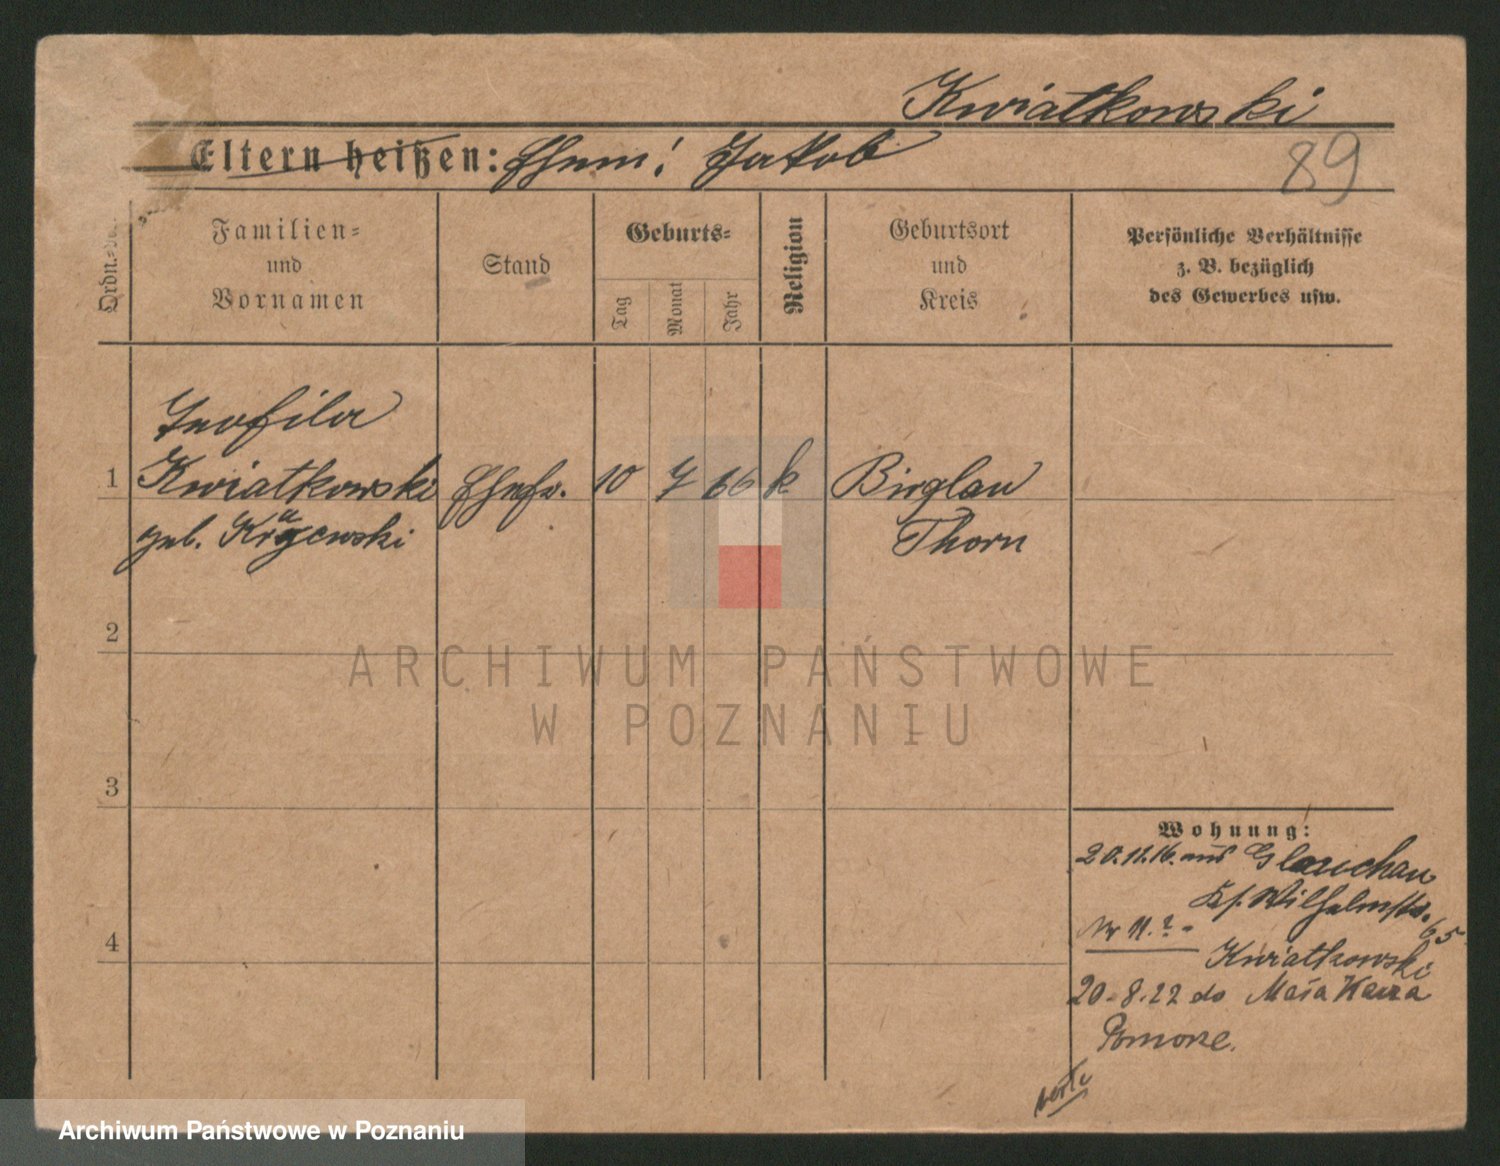 Kwiatkowski
Eltern heißen: Ehem: Jakob
89
Ordn.
Familien- und Vornamen
Stand
Geburts-
Tag
Monat
Jahr
Religion
Geburtsort und Kreis
Persönliche Verhältnisse
z. B. bezüglich
des Gewerbes usw.
Teofila
1 Kwiatkowski Ehefr. 10 7 66 k Birglau
geb. Thorn
2
3
4
Wohnung:
20.11.16. aus Glauchau
Wilhelmstr. 65
Nr 11.?
Kwiatkowski
20-8.22 do Mała
Pomorze.
ARCHIWUM PAŃSTWOWE
W POZNANIU
Archiwum Państwowe w Poznaniu